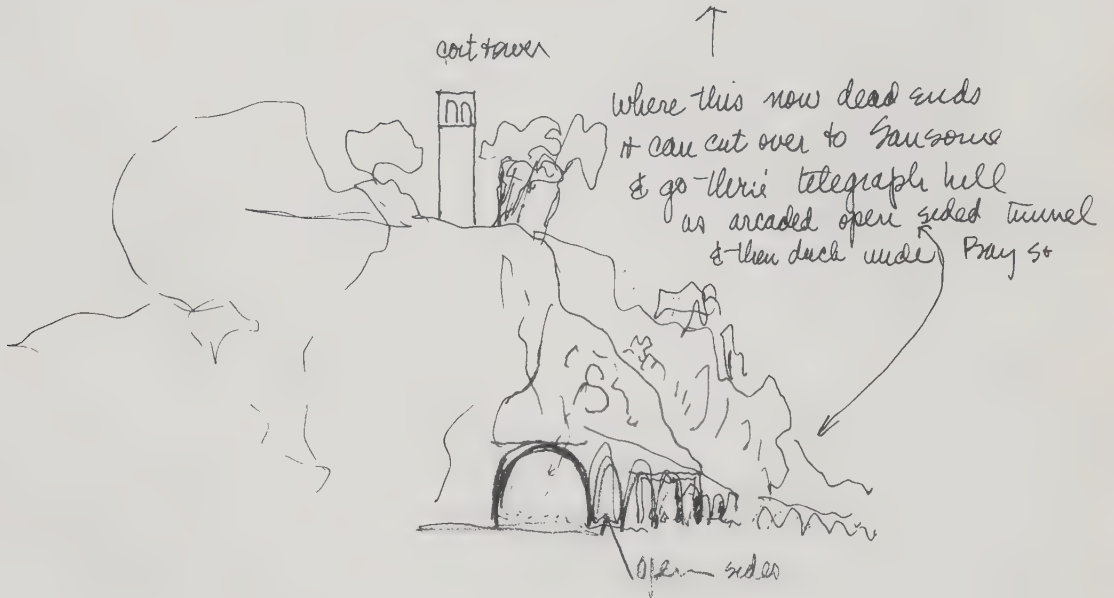 coit tower
where this now dead ends
it can cut over to Sansome
& go thru telegraph hill
as arcaded open sided tunnel
& then duck under Bay St
open sides